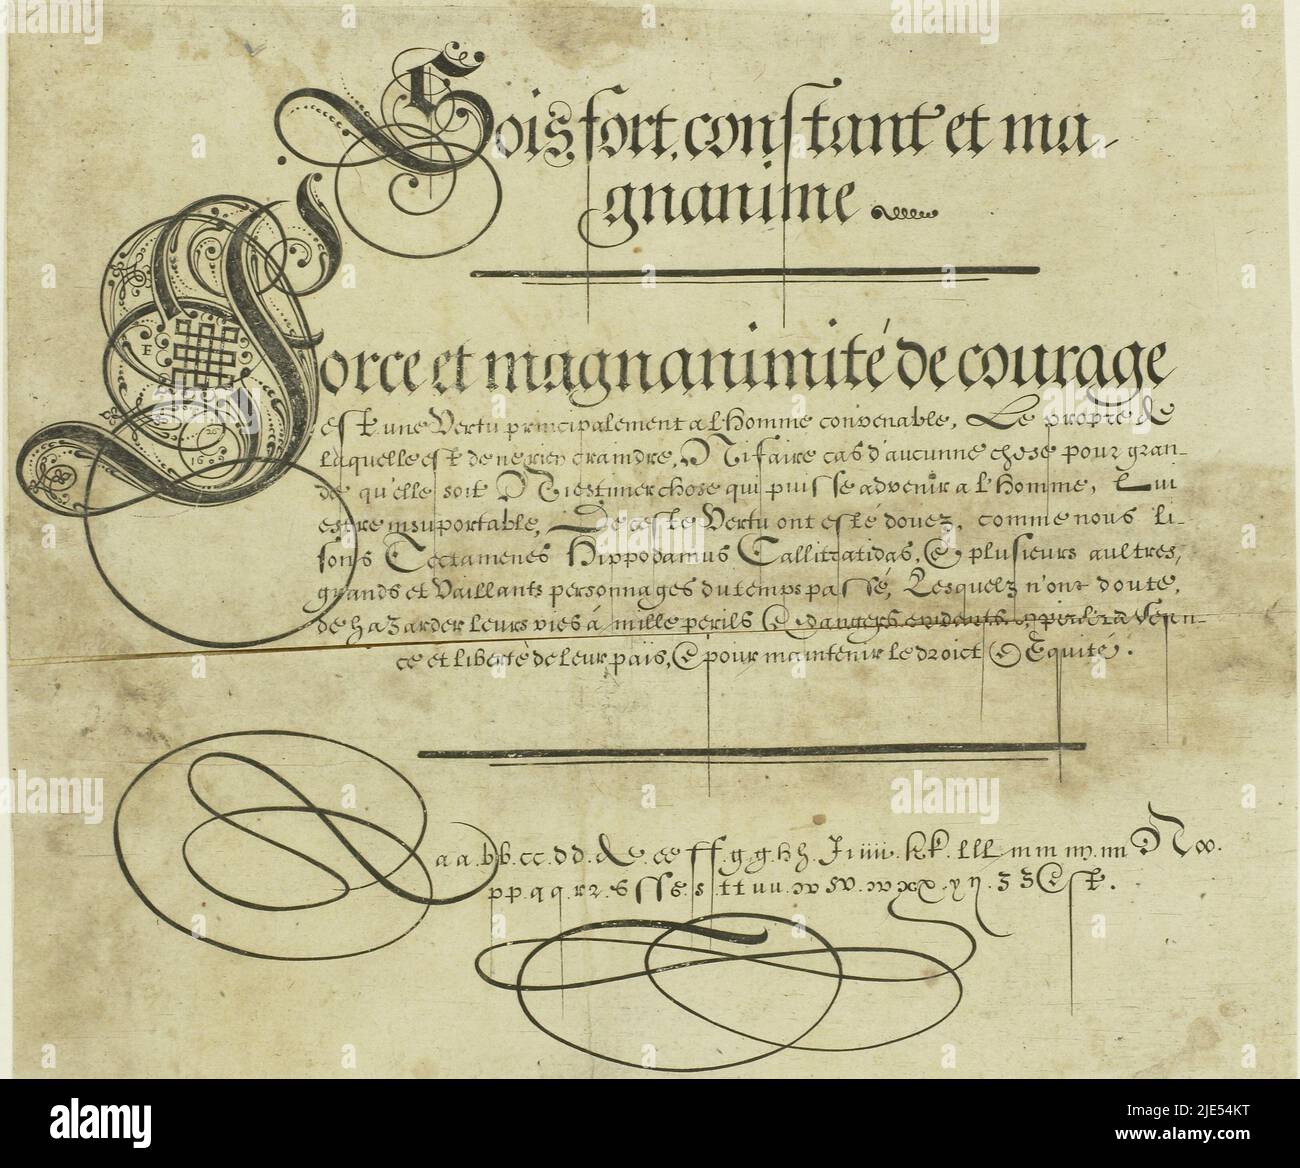 Sois fort, constant et ma-
gnanime
Force et magnanimité de courage
est une Vertu principalement a l'Homme convenable, Le propre de
laquelle est de ne rien craindre, Ni faire cas d'aucunne chose pour gran-
de qu'elle soit Ni estimer chose qui puisse advenir a l'Homme, Lui
estre insuportable, De ceste Vertu ont esté douez, comme nous li-
sons Hippodamus Callitratidas, & plusieurs aultres,
grands et Vaillants personnages du temps passé, Lesquelz n'ont doute,
de hazarder leurs vies á mille perils & dangers evidents
ce et liberté de leur païs, & pour maintenir le droict & Equité.
E
1605
a a . b b . cc . d d . & . ee ff . g g . h h . J i iiii . k k . l l l . m m m . nn N oo .
p p . q q . r 2 . s s s s . s . t t u u . w w . w x x . y y . z z & st .
alamy
Image ID: 2JE54KT
www.alamy.com